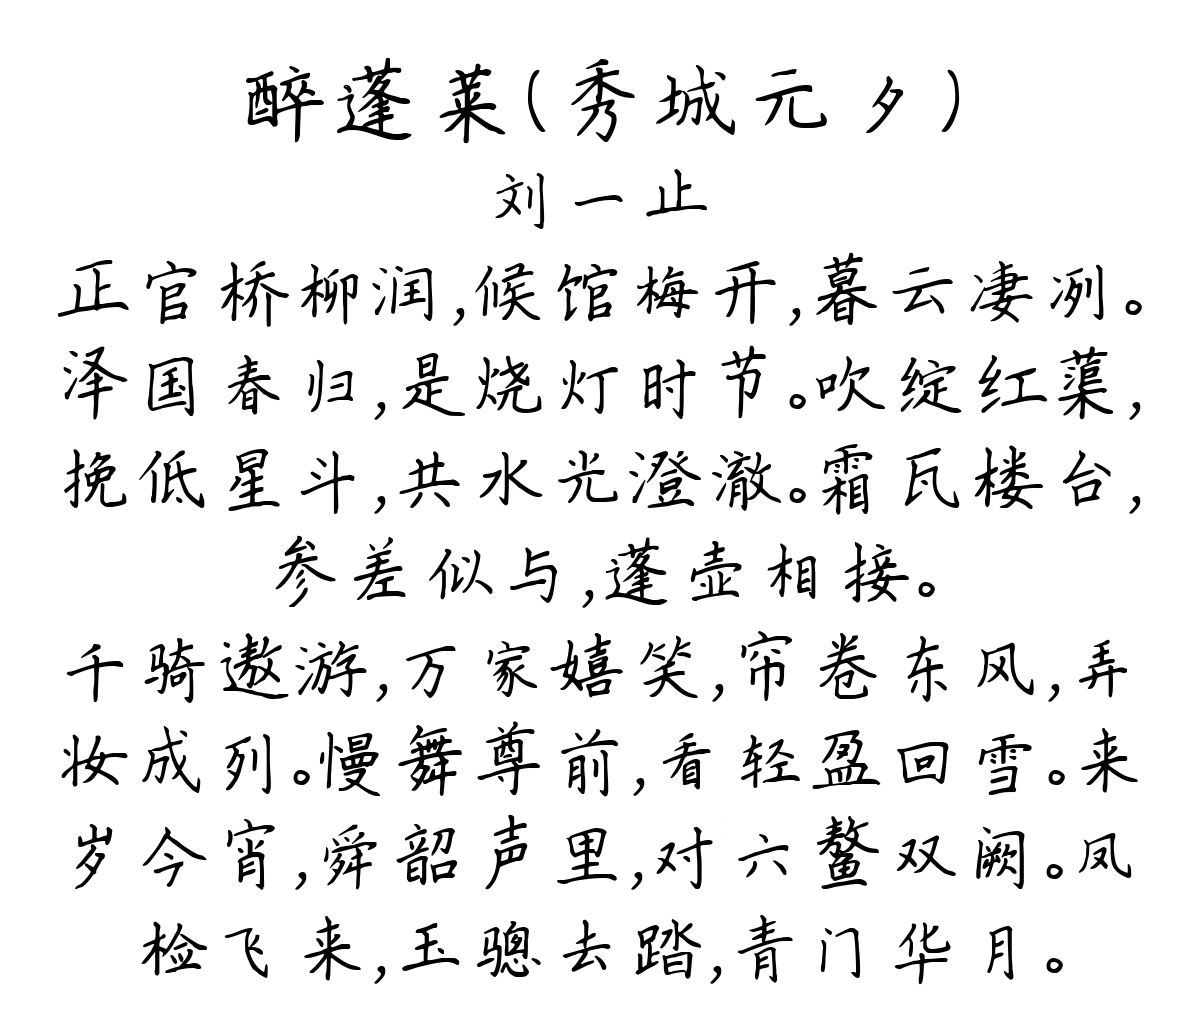 醉蓬莱(秀城元夕)
刘一止
正官桥柳润,候馆梅开,暮云凄冽。
泽国春归,是烧灯时节。吹绽红蕖,
挽低星斗,共水光澄澈。霜瓦楼台,
参差似与,蓬壶相接。
千骑遨游,万家嬉笑,帘卷东风,弄
妆成列。慢舞尊前,看轻盈回雪。来
岁今宵,舜韶声里,对六鳌双阙。凤
检飞来,玉骢去踏,青门华月。